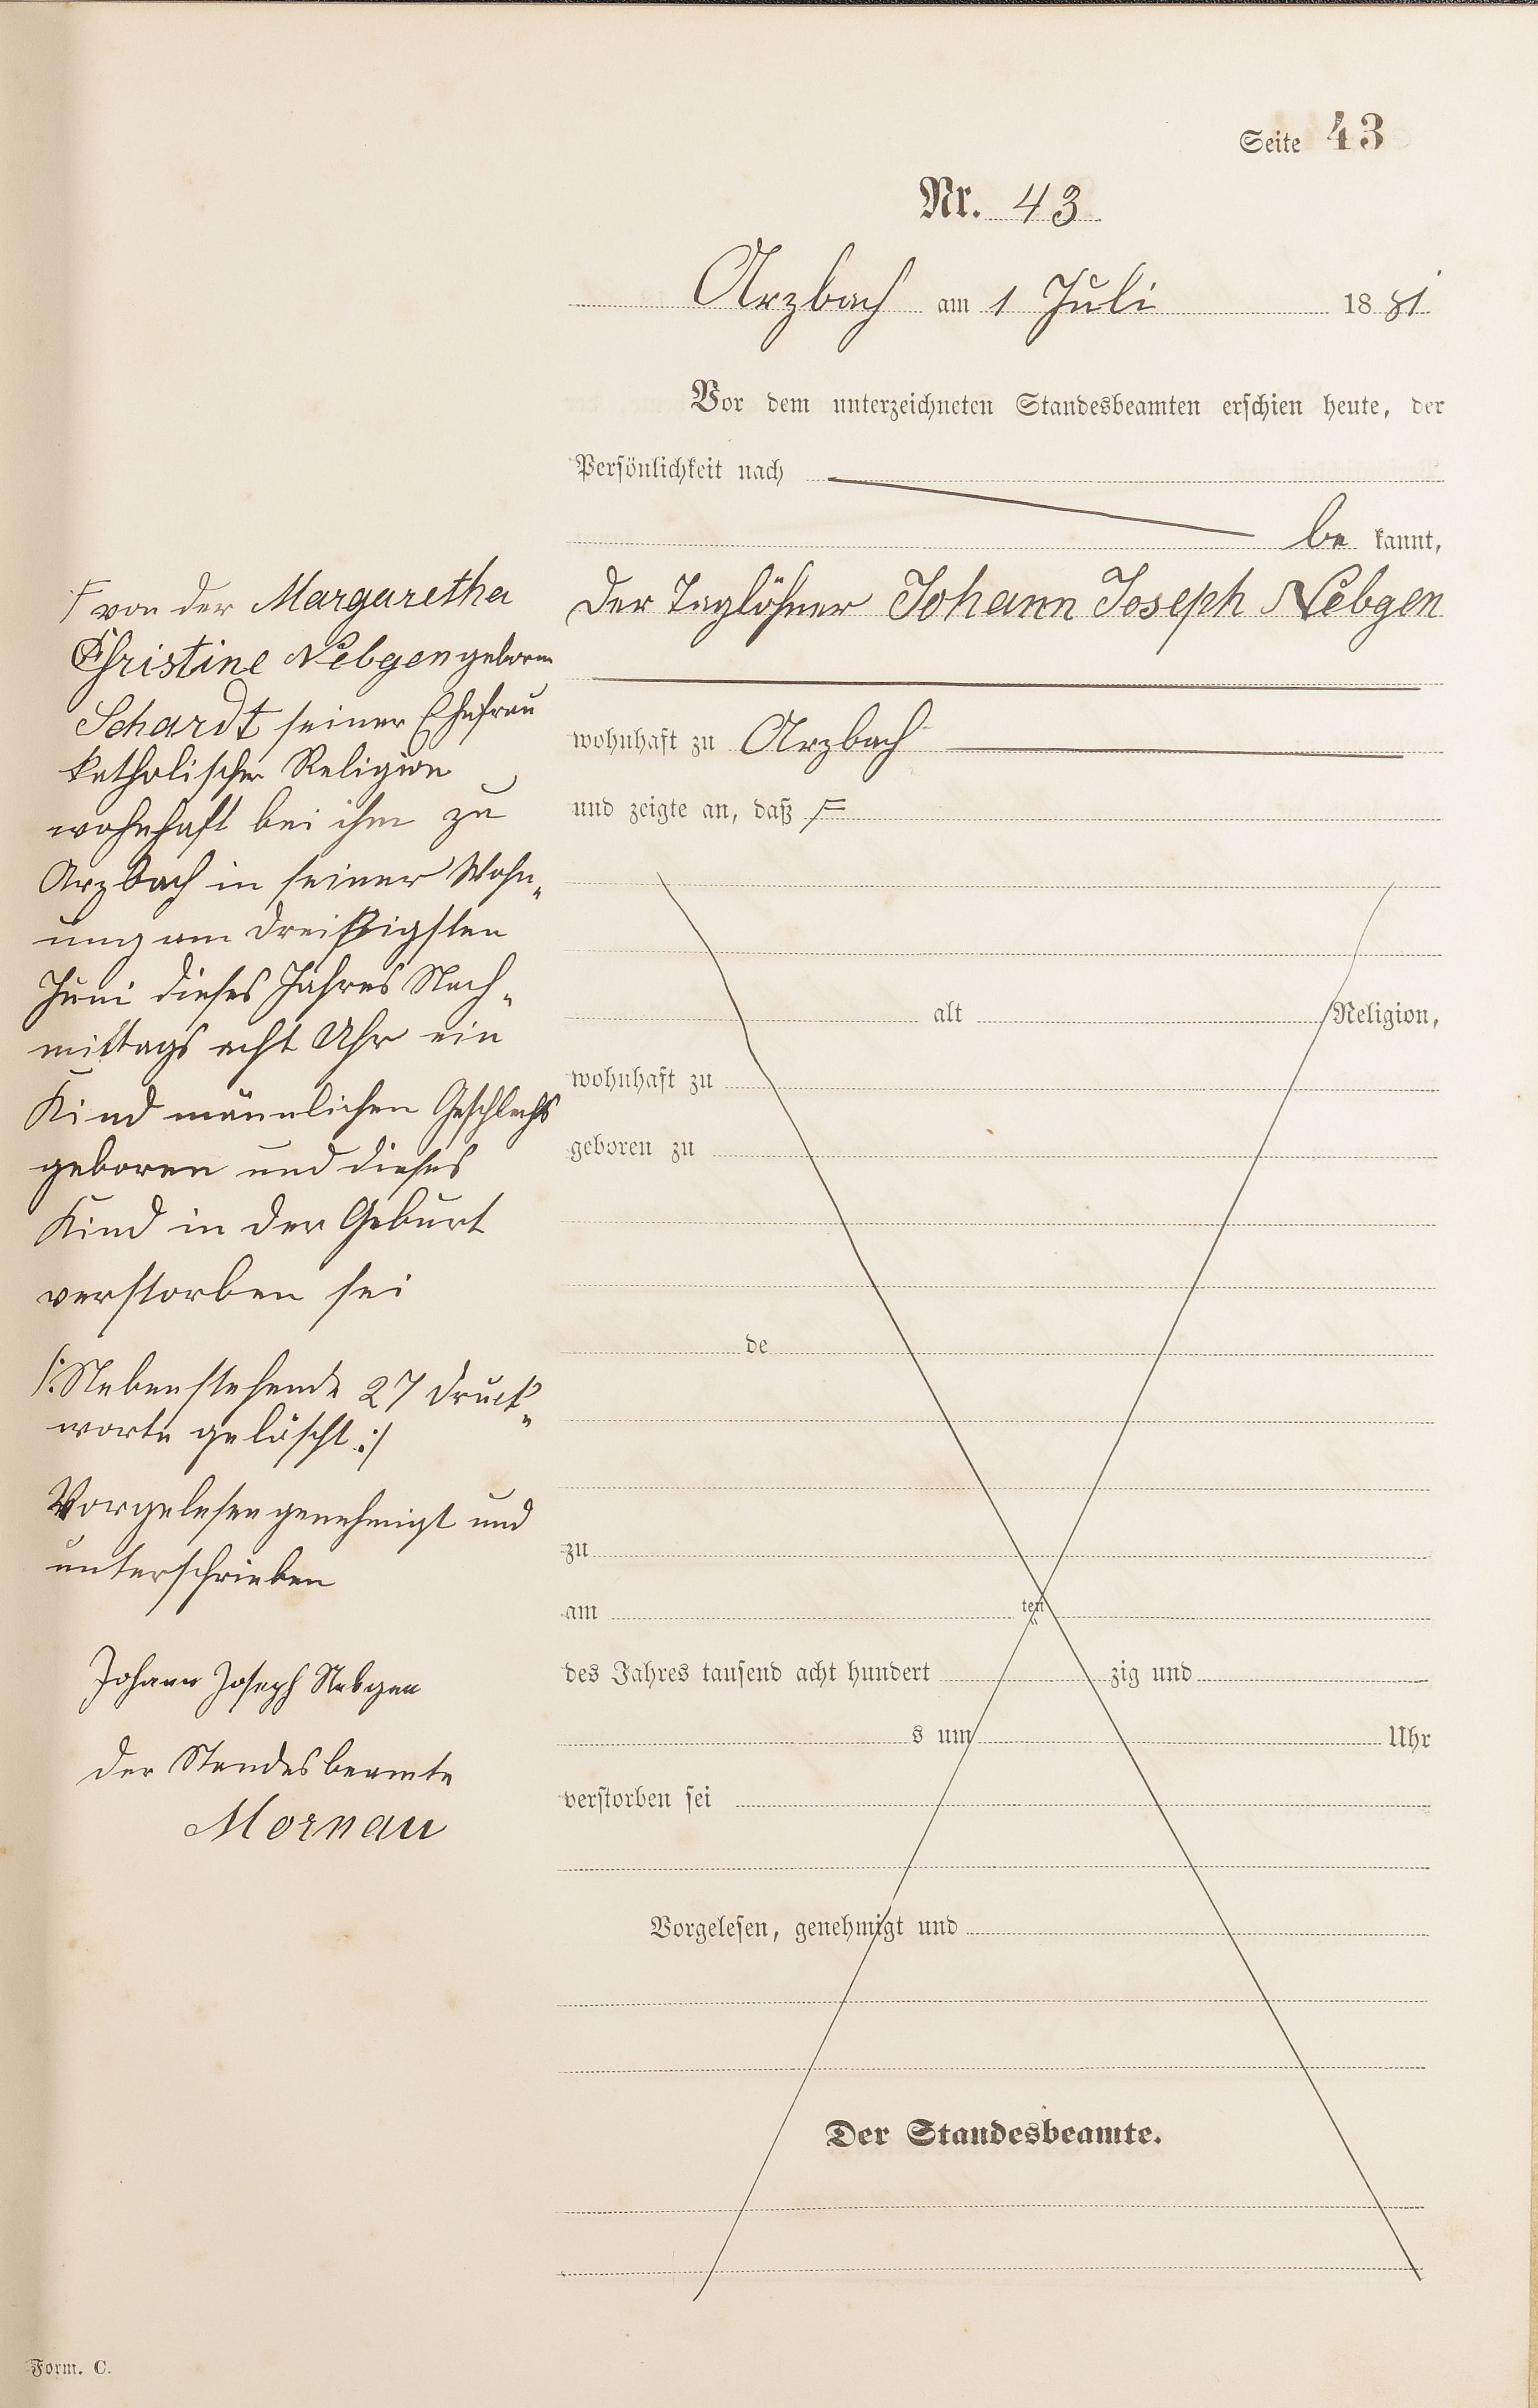 Seite 43
Nr. 43
Arzbach am 1 Juli 1881
Vor dem unterzeichneten Standesbeamten erschien heute, der
Persönlichkeit nach
be kannt,
der Taglöhner Johann Joseph Nebgen
wohnhaft zu Arzbach
und zeigte an, daß F
alt Religion,
wohnhaft zu
geboren zu
de
zu
am ten
des Jahres tausend acht hundert zig und
s um Uhr
verstorben sei
Vorgelesen, genehmigt und
Der Standesbeamte.
F von der Margaretha
Christine Nebgen geboren
Schardt seiner Ehefrau
katholischer Religion
wohnhaft bei ihm zu
Arzbach in seiner Wohn„
ung am dreißigsten
Juni dieses Jahres Nach„
mittags acht Uhr ein
Kind männlichen Geschlechts
geboren und dieses
Kind in der Geburt
verstorben sei
/: Nebenstehende 27 Druck„
worte gelöscht :/
Vorgelesen genehmigt und
unterschrieben
Johann Joseph Nebgen
der Standesbeamte
Mornau
Form. C.